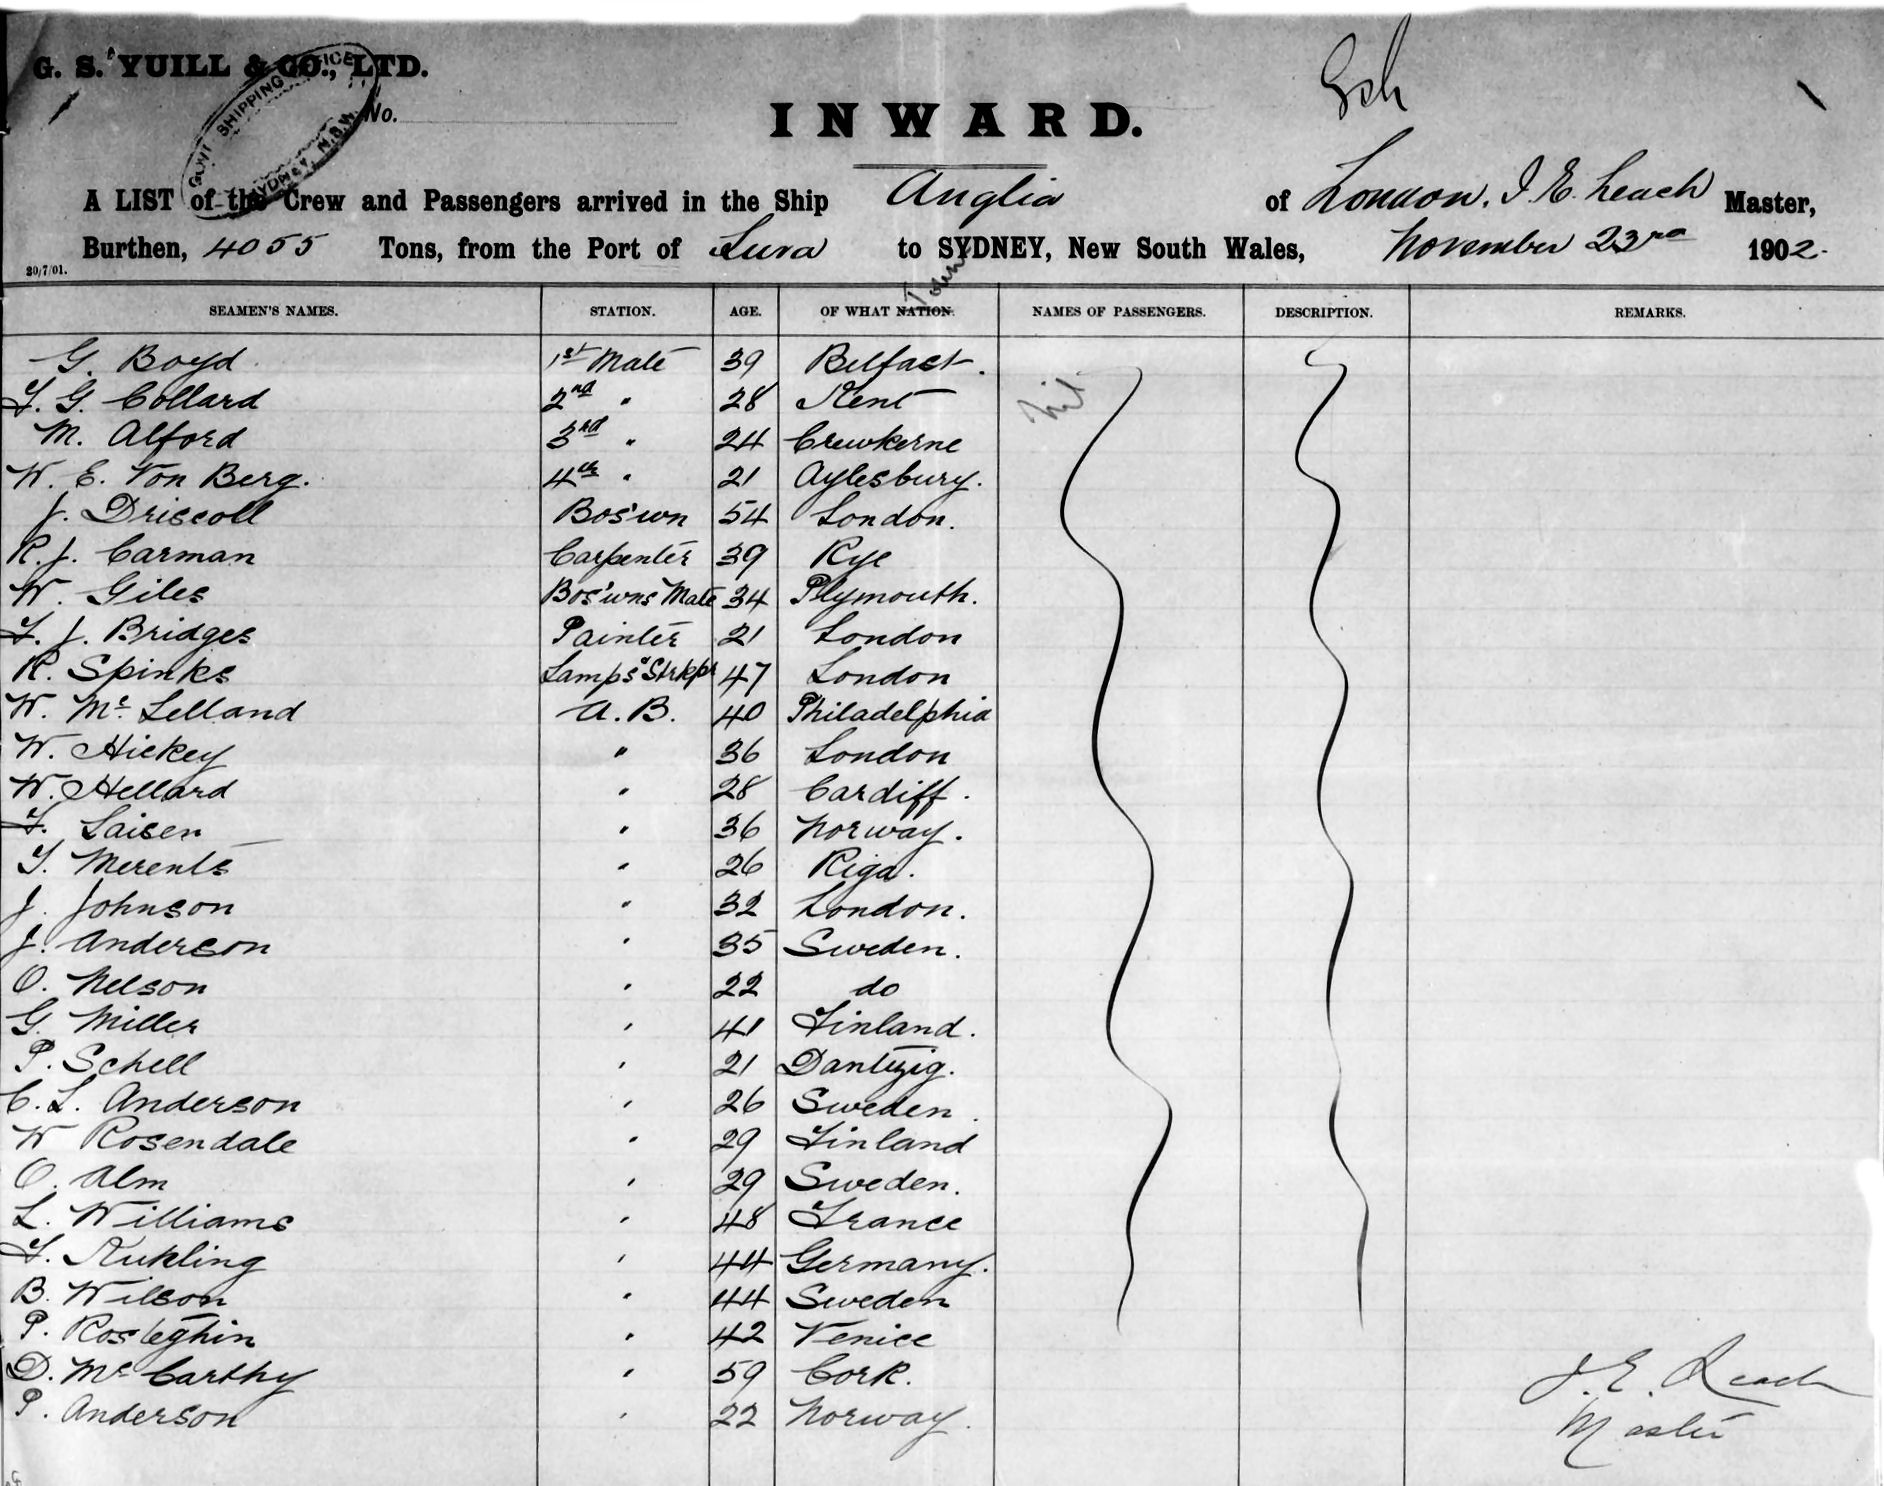 G. S. YUILL & CO., LTD.
GOVT SHIPPING OFFICE
SYDNEY, N.S.W.
No.
INWARD.
A LIST of the Crew and Passengers arrived in the Ship Anglia of London, J. E. Leach Master,
Burthen, 4055 Tons, from the Port of Suva to SYDNEY, New South Wales, November 23rd 1902.
20/7/01.
SEAMEN'S NAMES. STATION. AGE. OF WHAT NATION. Town NAMES OF PASSENGERS. DESCRIPTION. REMARKS.
G. Boyd 1st Mate 39 Belfast. Nil
F. G. Collard 2nd " 28 Kent
M. Alford 3rd " 24 Crewkerne
W. E. Von Berg. 4th " 21 Aylesbury.
J. Driscoll Bos'wn 54 London.
R. J. Carman Carpenter 39 Rye
W. Giles Bos'wns Mate 34 Plymouth.
F. J. Bridges Painter 21 London
R. Spinks Lamps & Strkpr 47 London
W. Mc Lelland A. B. 40 Philadelphia
W. Hickey " 36 London
W. Hellard " 28 Cardiff.
F. Laisen " 36 Norway.
F. Merents " 26 Riga.
J. Johnson " 32 London.
J. Anderson " 35 Sweden.
O. Nelson " 22 do
G. Miller " 41 Finland.
P. Schell " 21 Dantzig.
C. L. Anderson " 26 Sweden.
W Rosendale " 29 Finland
O. Alm " 29 Sweden.
L. Williams " 48 France
F. Kukling " 44 Germany.
B. Wilson " 44 Sweden
P. Rosteghin " 42 Venice
D. Mc Carthy " 59 Cork.
P. Anderson " 22 Norway.
J. E. Leach
Master